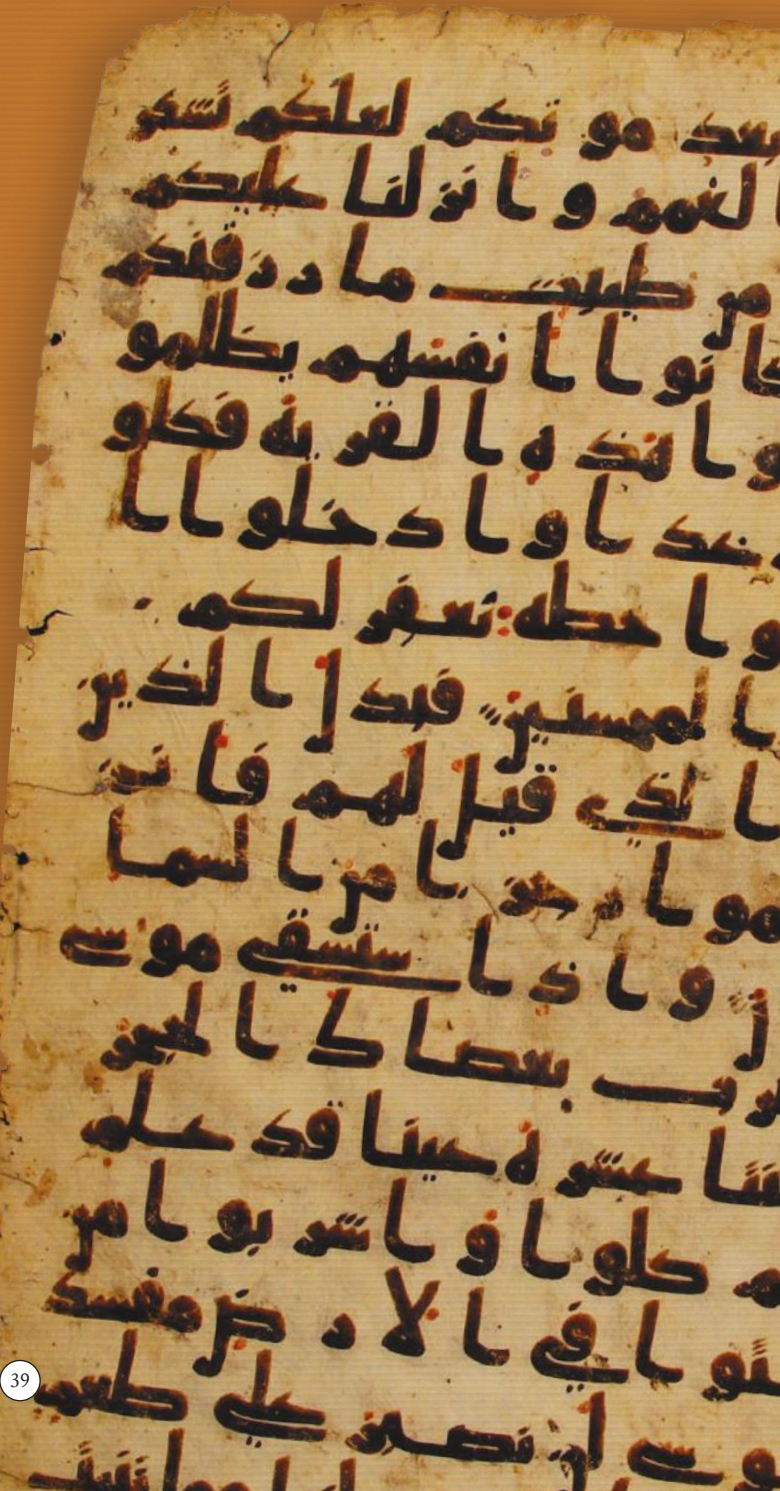 بعد موتكم لعلكم تشكر
الغمم وانزلنا عليكم
من طيبت ما رزقنكم
كانوا انفسهم يظلمو
وا هذه القرية فكلو
رغدا وادخلوا ا
وا حطة نغفر لكم
المحسنين فبدل الذين
ا الذي قيل لهم فانز
موا رجزا من السما
ن واذ استسقى موسى
رب بعصاك الحجر
تا عشرة عينا قد علم
م كلوا واشربوا من
ثوا في الارض مفسد
وسى لن نصبر على طعم
مما تنبت
39